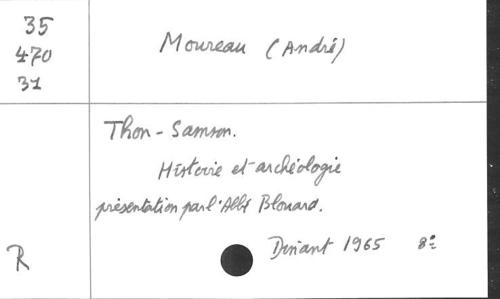 35
470
31
Moureau (André)
Thon-Samson.
Histoire et archéologie
présentation par l'Abbé Blouard.
Dinant 1965 8°
R